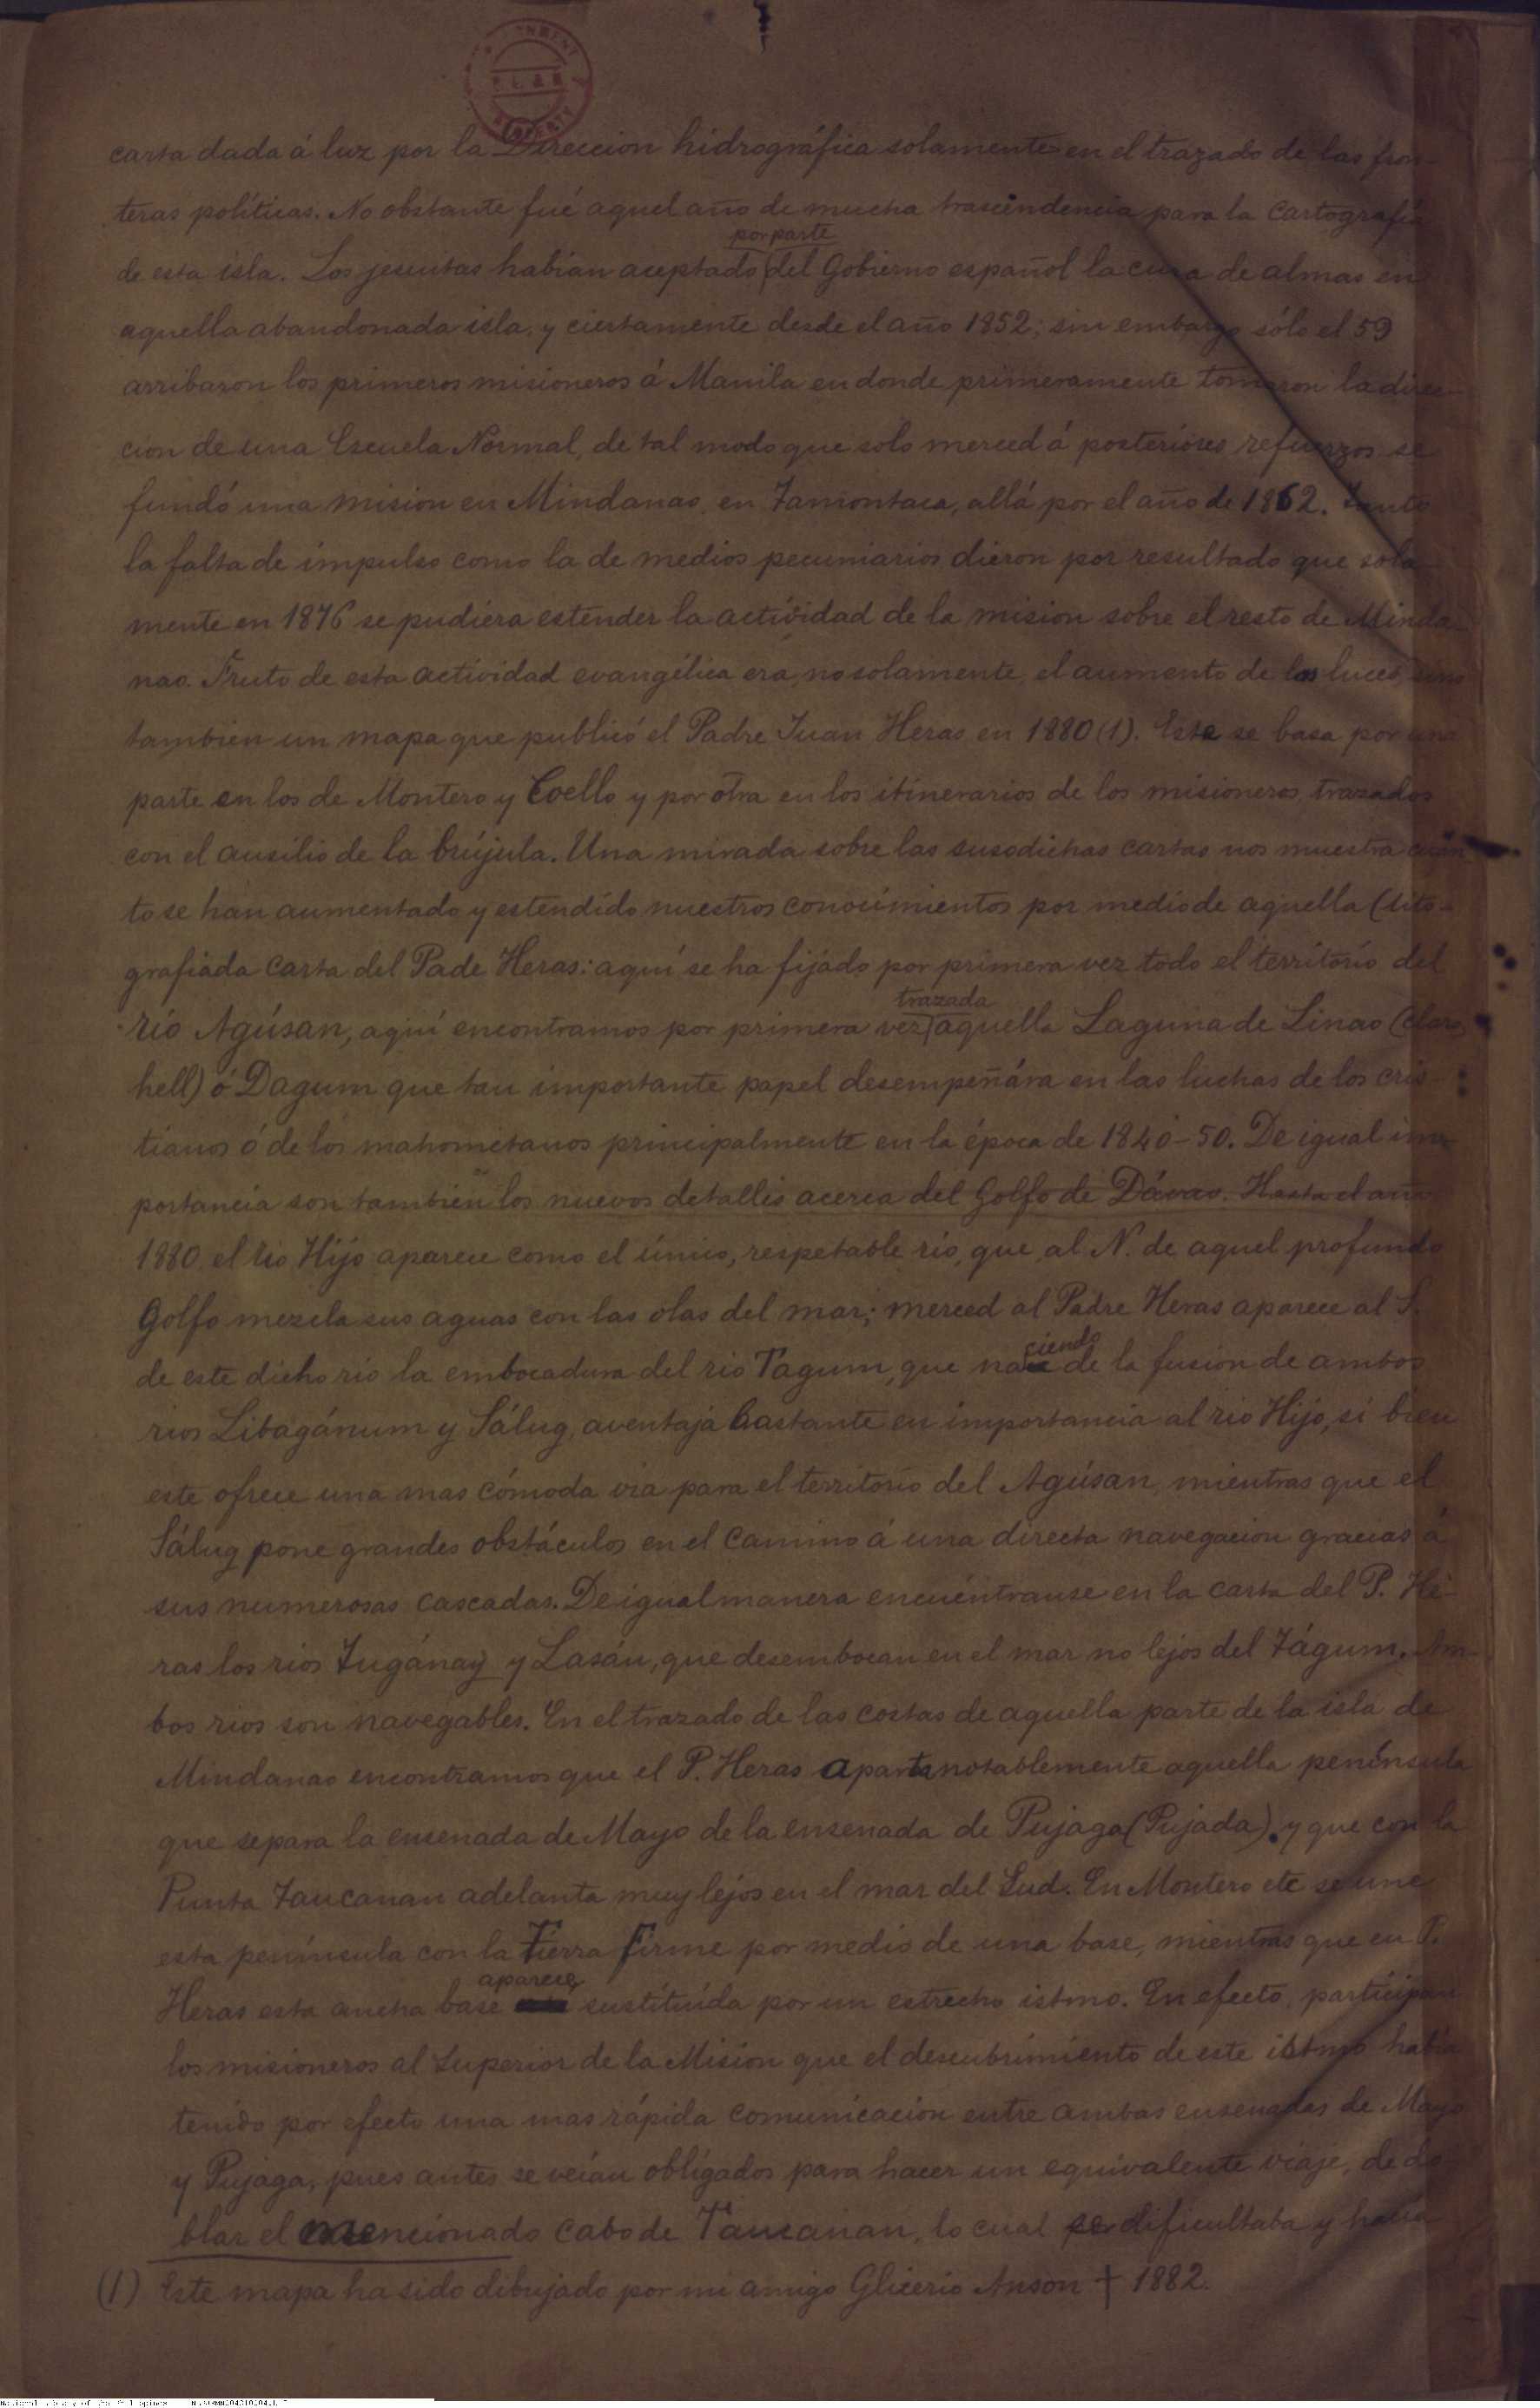 carta dada á luz por la Direccion hidrográfica solamente en el trazado de las fron-
teras políticas. No obstante fué aquel año de mucha trascendencia para la cartografía
por parte
de esta isla. Los jesuitas habían aceptado del Gobierno español la cura de almas en
aquella abandonada isla, y ciertamente desde el año 1852; sin embargo sólo el 59
arribaron los primeros misioneros á Manila en donde primeramente tomaron la direc-
cion de una Escuela Normal, de tal modo que solo merced á posteriores refuerzos se
fundó una mision en Mindanao, en Tamontaca, allá por el año de 1862. Tanto
la falta de impulso como la de medios pecuniarios dieron por resultado que sola-
mente en 1876 se pudiera estender la actividad de la mision sobre el resto de Minda-
nao. Fruto de esta actividad evangélica era, no solamente el aumento de las luces, sino
tambien un mapa que publicó el Padre Juan Heras en 1880 (1). Este se basa por una
parte en los de Montero y Coello y por otra en los itinerarios de los misioneros, trazados
con el ausilio de la brújula. Una mirada sobre las susodichas cartas nos muestra cuan-
to se han aumentado y estendido nuestros conocimientos por medio de aquella (lito-
grafiada carta del Pade Heras: aquí se ha fijado por primera vez todo el territorio del
trazada
río Agúsan, aquí encontramos por primera vez aquella Laguna de Linao
hell) ó Dagum que tan importante papel desempeñára en las luchas de los cris-
tianos ó de los mahometanos principalmente en la época de 1840-50. De igual im-
portancia son tambien los nuevos detalles acerca del Golfo de Dávao. Hasta el año
1880 el rio Hijo aparece como el único, respetable rio, que al N. de aquel profundo
Golfo mezcla sus aguas con las olas del mar; merced al Padre Heras aparece al S.
ciendo
de este dicho rio la embocadura del rio Tagum, que na de la fusión de ambos
rios Libagánum y Sálug, aventaja bastante en importancia al rio Hijo, si bien
este ofrece una mas cómoda via para el territorio del Agúsan, mientras que el
Sálug pone grandes obstáculos en el camino á una directa navegacion gracias á
sus numerosas cascadas. De igual manera encuéntranse en la carta del P. He-
ras los rios Tugánay y Lasán, que desembocan en el mar no lejos del Tágum. Am-
bos rios son navegables. En el trazado de las costas de aquella parte de la isla de
Mindanao encontramos que el P. Heras aparta notablemente aquella península
que separa la ensenada de Mayo de la ensenada de Pujaga (Pujada), y que con la
Punta Taucanan adelanta muy lejos en el mar del Sud. En Montero etc se une
esta península con la Tierra Firme por medio de una base, mientras que en P.
aparece
Heras esta ancha base sustituída por un estrecho istmo. En efecto, participan
los misioneros al Superior de la Mision que el descubrimiento de este istmo había
tenido por efecto una mas rápida comunicacion entre ambas ensenadas de Mayo
y Pujaga, pues antes se veían obligados para hacer un equivalente viaje, de do-
blar el mencionado cabo de Taucanan, lo cual se dificultaba y hacía
(1) Este mapa ha sido dibujado por mi amigo Glicerio Anson † 1882.